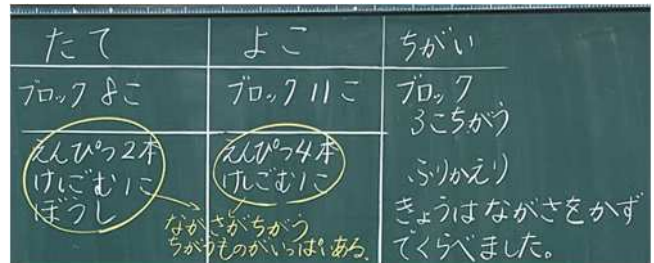 たて
よこ
ちがい
ブロック8こ
ブロック11こ
ブロック
3こちがう
えんぴつ2本
けしごむ1こ
ぼうし
えんぴつ4本
けしごむ1こ
ながさがちがう
ちがうものがいっぱいある。
ふりかえり
きょうはながさをかず
でくらべました。